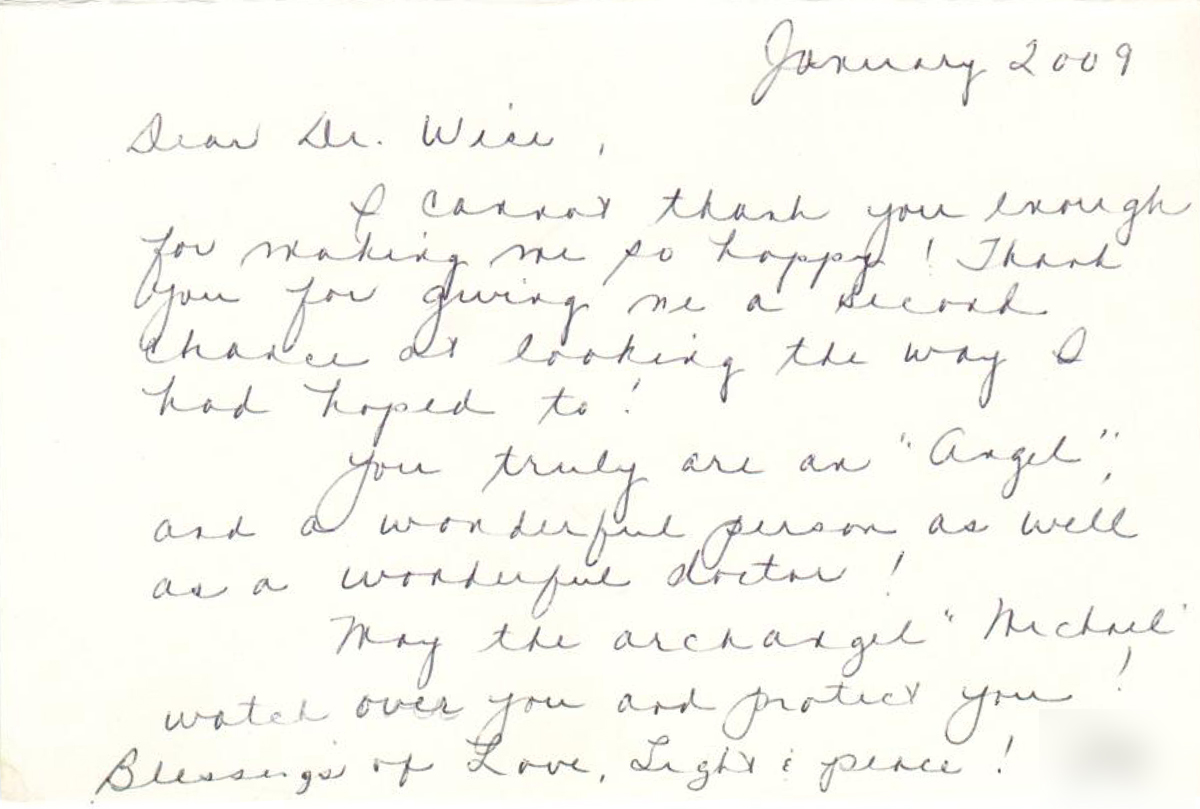 January 2009
Dear Dr. Wise,
I cannot thank you enough
for making me so happy! Thank
you for giving me a second
chance at looking the way I
had hoped to!
You truly are an "Angel",
and a wonderful person as well
as a wonderful doctor!
May the archangel "Michael"
watch over you and protect you!
Blessings of Love, Light & peace!